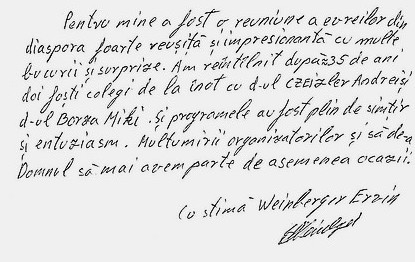 Pentru mine a fost o reuniune a evreilor din
diaspora foarte reușită și impresionantă cu multe
bucurii și surprize. Am reintîlnit după 35 de ani
doi foști colegi de la înot cu d-ul Czeizler Andrei și
d-ul Borza Miki. și programele au fost plin de simțir
și entuziasm. Multumirii organizatorilor și să dea
Domnul să mai avem parte de asemenea ocazii.
Cu stimă Weinberger Ervin